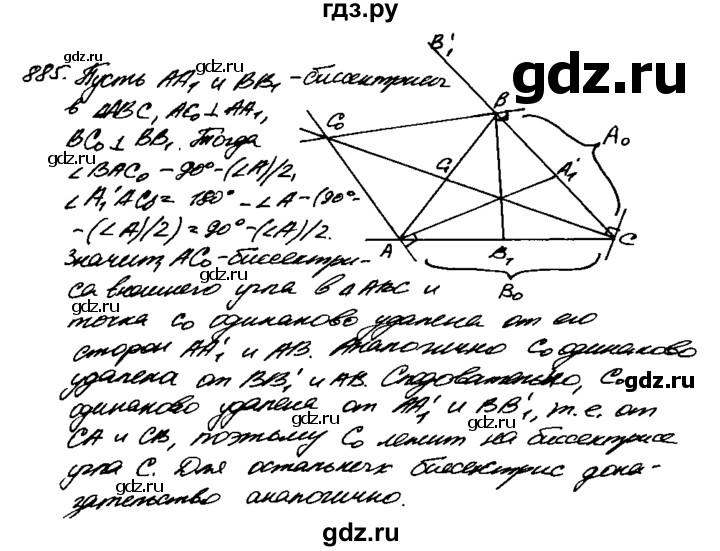 гдз.ру
885. Пусть AA₁ и BB₁ - биссектрисы
в △ABC, AC₀⊥AA₁,
BC₀⊥BB₁. Тогда
∠BAC₀ = 90° - (∠A)/2,
∠A₁'AC₀ = 180° - ∠A - (90° -
- (∠A)/2) = 90° - (∠A)/2.
Значит, AC₀ - биссектри-
са внешнего угла в △ABC и
точка C₀ одинаково удалена от его
сторон AA₁' и AB. Аналогично C₀ одинаково
удалена от BB₁' и AB. Следовательно, C₀
одинаково удалена от AA₁' и BB₁', т.е. от
CA и CB, поэтому C₀ лежит на биссектрисе
угла C. Для остальных биссектрис дока-
зательство аналогично.
B₁'
C₀
B
A₀
C₁
A₁'
A
B₁
C
B₀
gdz.ru
gdz.ru
gdz.ru
gdz.ru
gdz.ru
gdz.ru
gdz.ru
gdz.ru
gdz.ru
gdz.ru
gdz.ru
gdz.ru
gdz.ru
gdz.ru